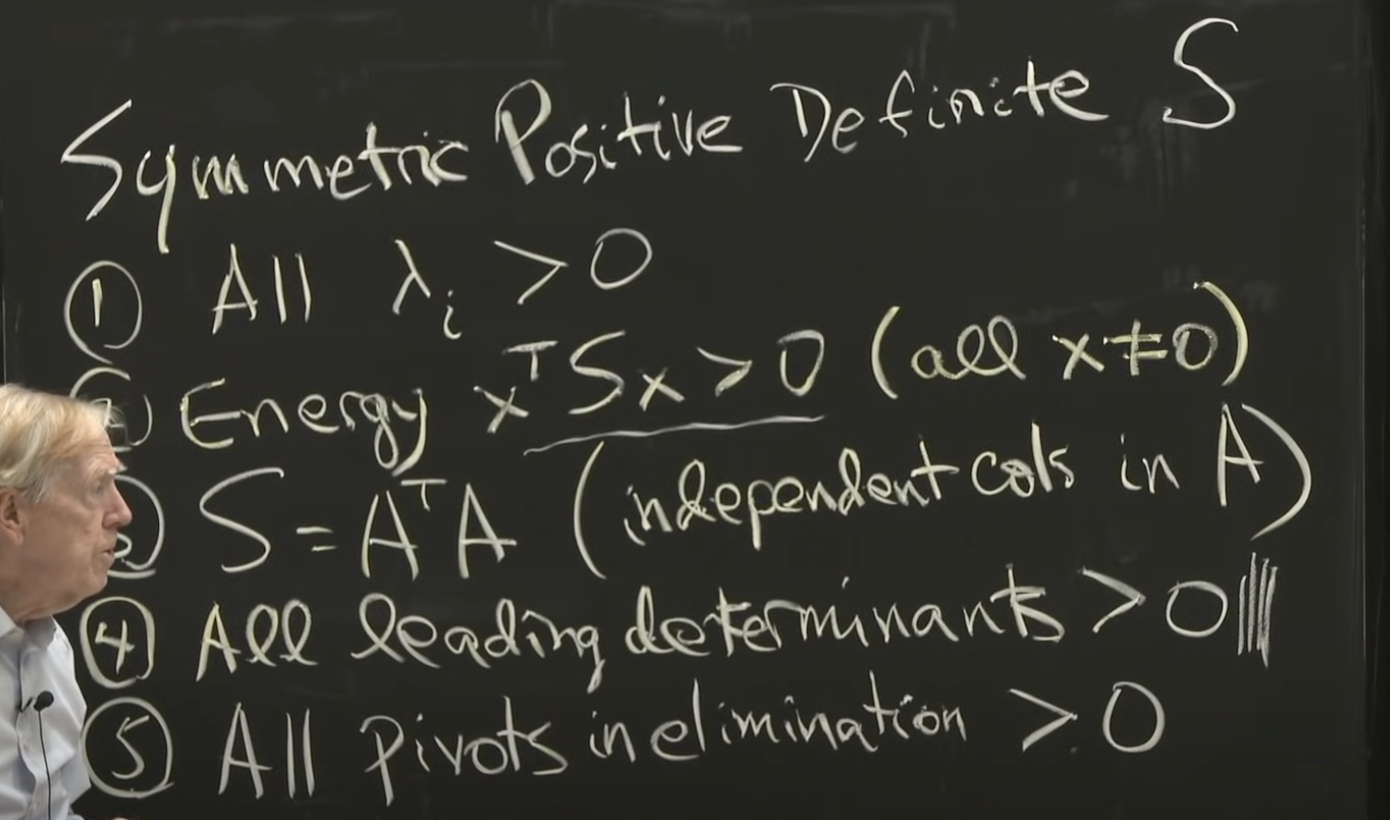 Symmetric Positive Definite S
① All λᵢ > 0
② Energy xᵀSx > 0 (all x ≠ 0)
③ S = AᵀA (independent cols in A)
④ All leading determinants > 0
⑤ All pivots in elimination > 0